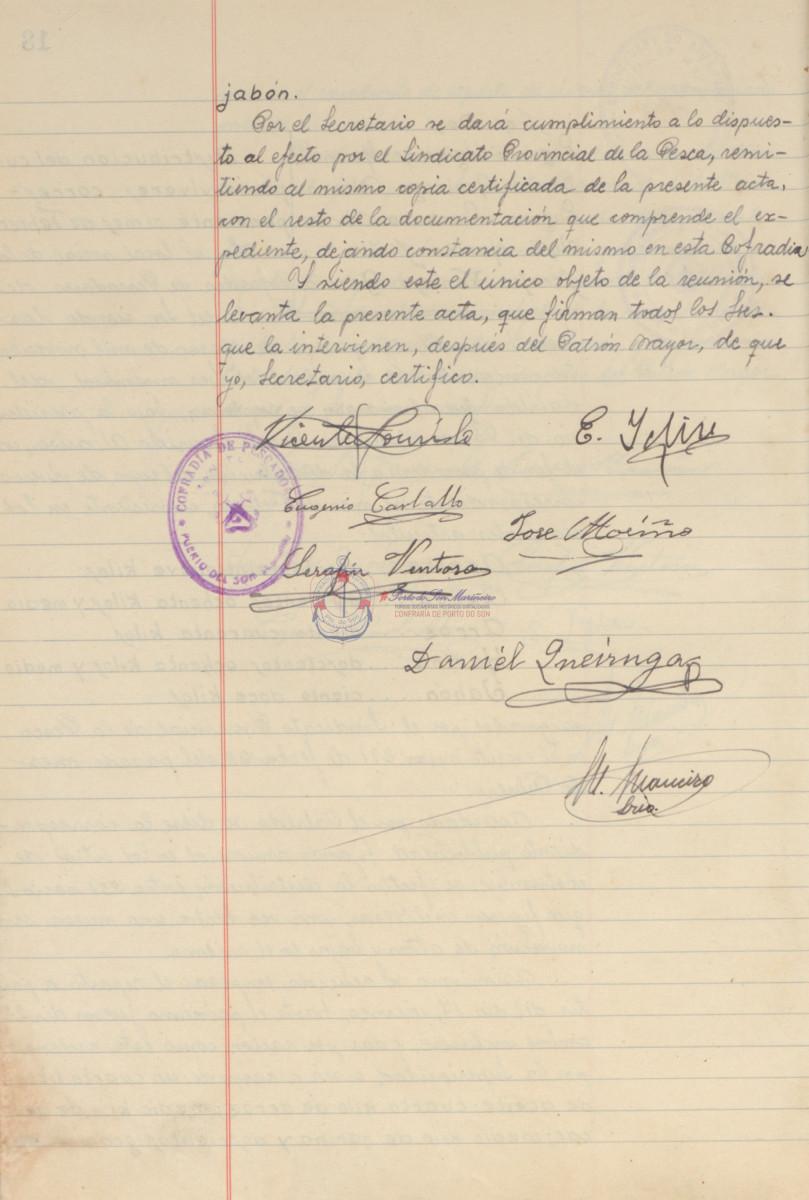 jabón.
Por el Secretario se dará cumplimiento a lo dispues-
to al efecto por el Sindicato Provincial de la Pesca, remi-
tiendo al mismo copia certificada de la presente acta,
con el resto de la documentación que comprende el ex-
pediente, dejando constancia del mismo en esta Cofradia
Y siendo este el único objeto de la reunión, se
levanta la presente acta, que firman todos los Sres.
que la intervienen, después del Patrón Mayor, de que
yo, Secretario, certifico.
Vicente
E.
COFRADIA DE PESCADO
PUERTO DEL SON
Eugenio Carballo
Jose Moriño
Serafin Ventosa
Porto do Son Mariñeiro
CONFRARÍA DE PORTO DO SON
Daniél Queiruga
M. Maneiro
Srio.